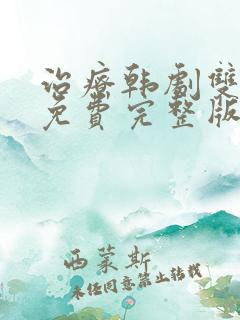 治療韩劇雙
免費完整版
西蒙斯
未经同意禁止转载